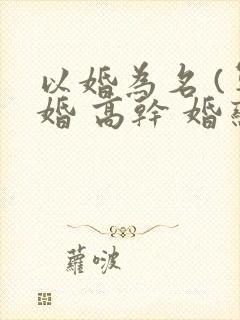 以婚為名(
婚 高幹 婚
蘿啵